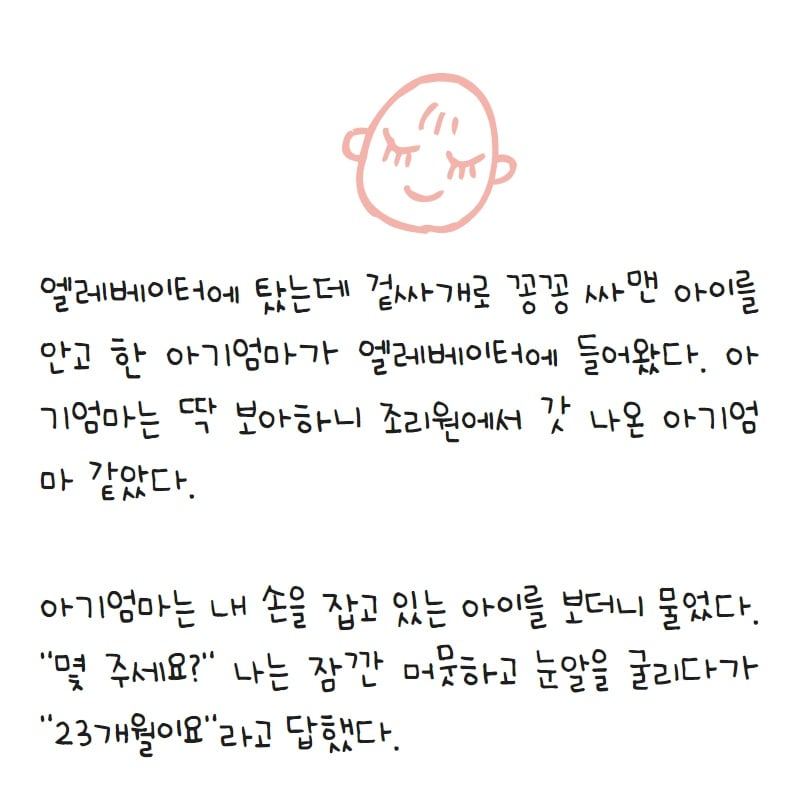 엘레베이터에 탔는데 겉싸개로 꽁꽁 싸맨 아이를
안고 한 아기엄마가 엘레베이터에 들어왔다. 아
기엄마는 딱 보아하니 조리원에서 갓 나온 아기엄
마 같았다.
아기엄마는 내 손을 잡고 있는 아이를 보더니 물었다.
"몇 주세요?" 나는 잠깐 머뭇하고 눈알을 굴리다가
"23개월이요"라고 답했다.